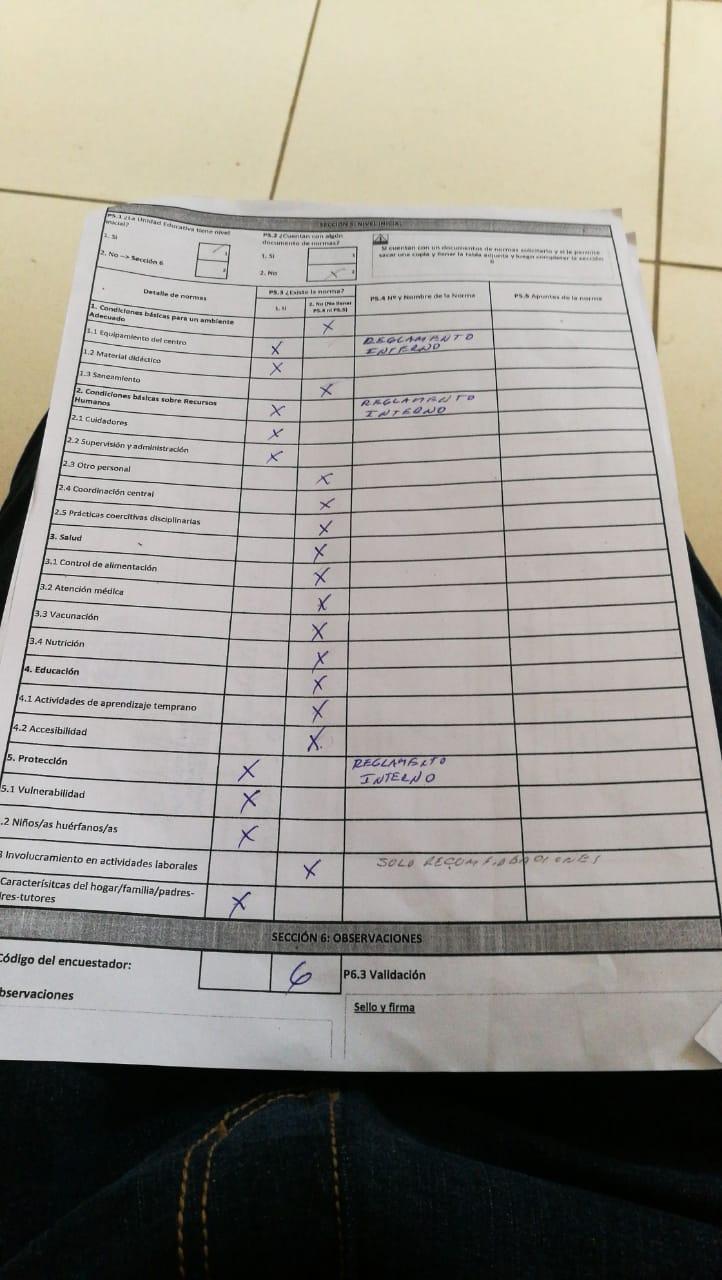 SECCIÓN 5: NIVEL INICIAL
P5.1 ¿La Unidad Educativa tiene nivel inicial?
1. Si 1
2. No --> Sección 6 2
P5.2 ¿Cuentan con algún documento de normas?
1. Si 1
2. No X 2
Si cuentan con un documentos de normas solicitarlo y si le permite
sacar una copia y llenar la tabla adjunta y luego completar la sección
6
Detalle de normas
P5.3 ¿Existe la norma?
1. Si
2. No (No llenar P5.4 ni P5.5)
P5.4 Nº y Nombre de la Norma
P5.5 Apuntes de la norma
1. Condiciones básicas para un ambiente
Adecuado X
1.1 Equipamiento del centro X REGLAMENTO
INTERNO
1.2 Material didáctico X
1.3 Saneamiento X
2. Condiciones básicas sobre Recursos
Humanos X REGLAMENTO
INTERNO
2.1 Cuidadores X
2.2 Supervisión y administración X
2.3 Otro personal X
2.4 Coordinación central X
2.5 Prácticas coercitivas disciplinarias X
3. Salud X
3.1 Control de alimentación X
3.2 Atención médica X
3.3 Vacunación X
3.4 Nutrición X
4. Educación X
4.1 Actividades de aprendizaje temprano X
4.2 Accesibilidad X
5. Protección X REGLAMENTO
INTERNO
5.1 Vulnerabilidad X
.2 Niños/as huérfanos/as X
3 Involucramiento en actividades laborales X SOLO RECOMENDACIONES
Caracterísitcas del hogar/familia/padres-
res-tutores X
SECCIÓN 6: OBSERVACIONES
Código del encuestador: 6
P6.3 Validación
bservaciones
Sello y firma